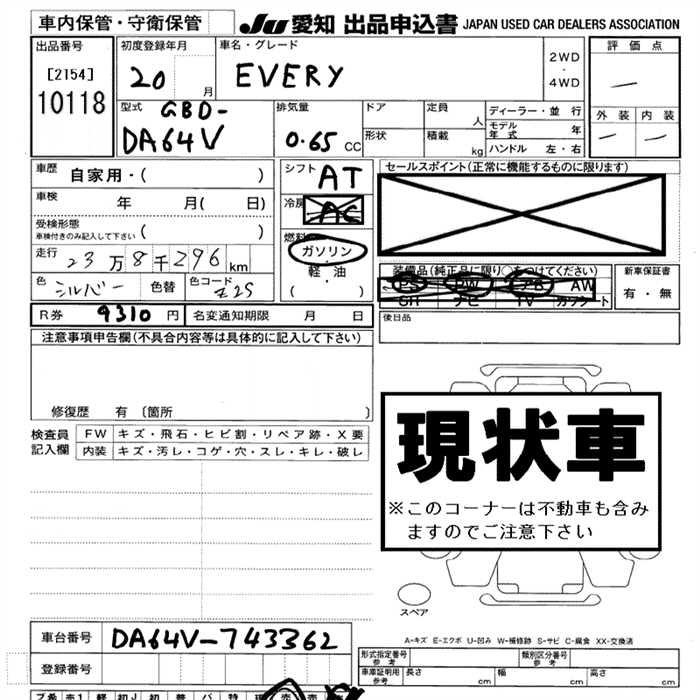 車内保管・守衛保管
JU 愛知 出品申込書 JAPAN USED CAR DEALERS ASSOCIATION
出品番号
[2154]
10118
初度登録年月
20 月
車名・グレード
EVERY
2WD
・
4WD
評価点
—
外装 内装
— —
型式 GBD-
DA64V
排気量
0.65 CC
ドア
定員 人
形状
積載 kg
ディーラー・並行
モデル年式 年
ハンドル 左・右
車歴
自家用・( )
車検
年 月( 日)
受検形態
車検付きのみ記入して下さい ( )
走行
23万8千296km
色 シルバー 色替
色コード Z2S
シフト AT
冷房 AC
燃料
ガソリン
・
軽・油
( )
セールスポイント(正常に機能するものに限ります)
装備品(純正品に限り○をつけてください)
PS PW AB AW
SR ナビ TV カワシート
新車保証書
有・無
R券 9310円 名変通知期限 月 日
後日品
注意事項申告欄(不具合内容等は具体的に記入して下さい)
修復歴 有 〔箇所 〕
検査員
記入欄
FW キズ・飛石・ヒビ割・リペア跡・X要
内装 キズ・汚レ・コゲ・穴・スレ・キレ・破レ
現状車
※このコーナーは不動車も含み
ますのでご注意下さい
スペア
A-キズ E-エクボ U-凹み W-補修跡 S-サビ C-腐食 XX-交換済
車台番号 DA64V-743362
登録番号
形式指定番号
参考
類別区分番号
参考
車庫証明用
参考
長さ cm 幅 cm 高さ cm